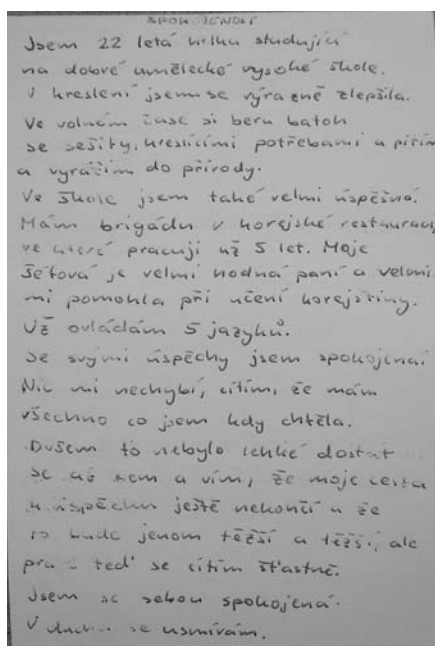 SPOKOJENOST
Jsem 22 letá holka studující
na dobré umělecké vysoké škole.
V kreslení jsem se výrazně zlepšila.
Ve volném čase si beru batoh
se sešity, kreslícími potřebami a pitím
a vyrážím do přírody.
Ve škole jsem také velmi úspěšná.
Mám brigádu v korejské restauraci,
ve které pracuji už 5 let. Moje
šéfová je velmi hodná paní a velmi
mi pomohla při učení korejštiny.
Už ovládám 5 jazyků.
Se svými úspěchy jsem spokojená.
Nic mi nechybí, cítím, že mám
všechno co jsem kdy chtěla.
Ovšem to nebylo lehké dostat
se až sem a vím, že moje cesta
k úspěchu ještě nekončí a že
to bude jenom těžší a těžší, ale
teď se cítím šťastně.
Jsem se sebou spokojená.
V duchu se usmívám.